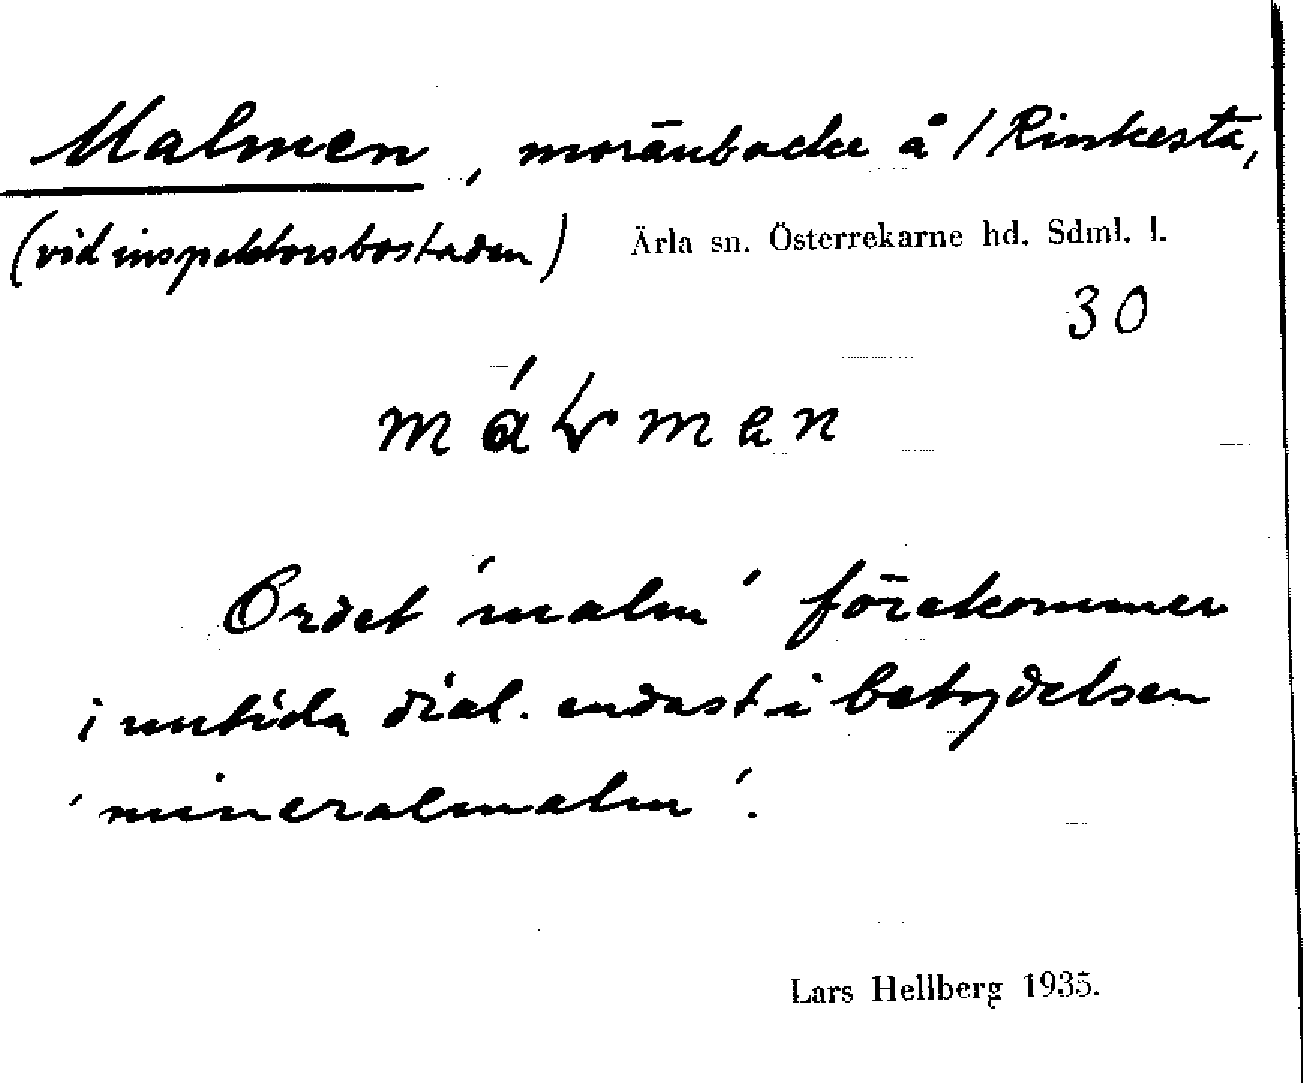 Malmen, moränbacke å / Rinkesta,
(vid inspektorsbostaden) Ärla sn. Österrekarne hd. Sdml. l.
30
Ordet 'malm' förekommer
i nutida dial. endast i betydelsen
'mineralmalm'.
Lars Hellberg 1935.